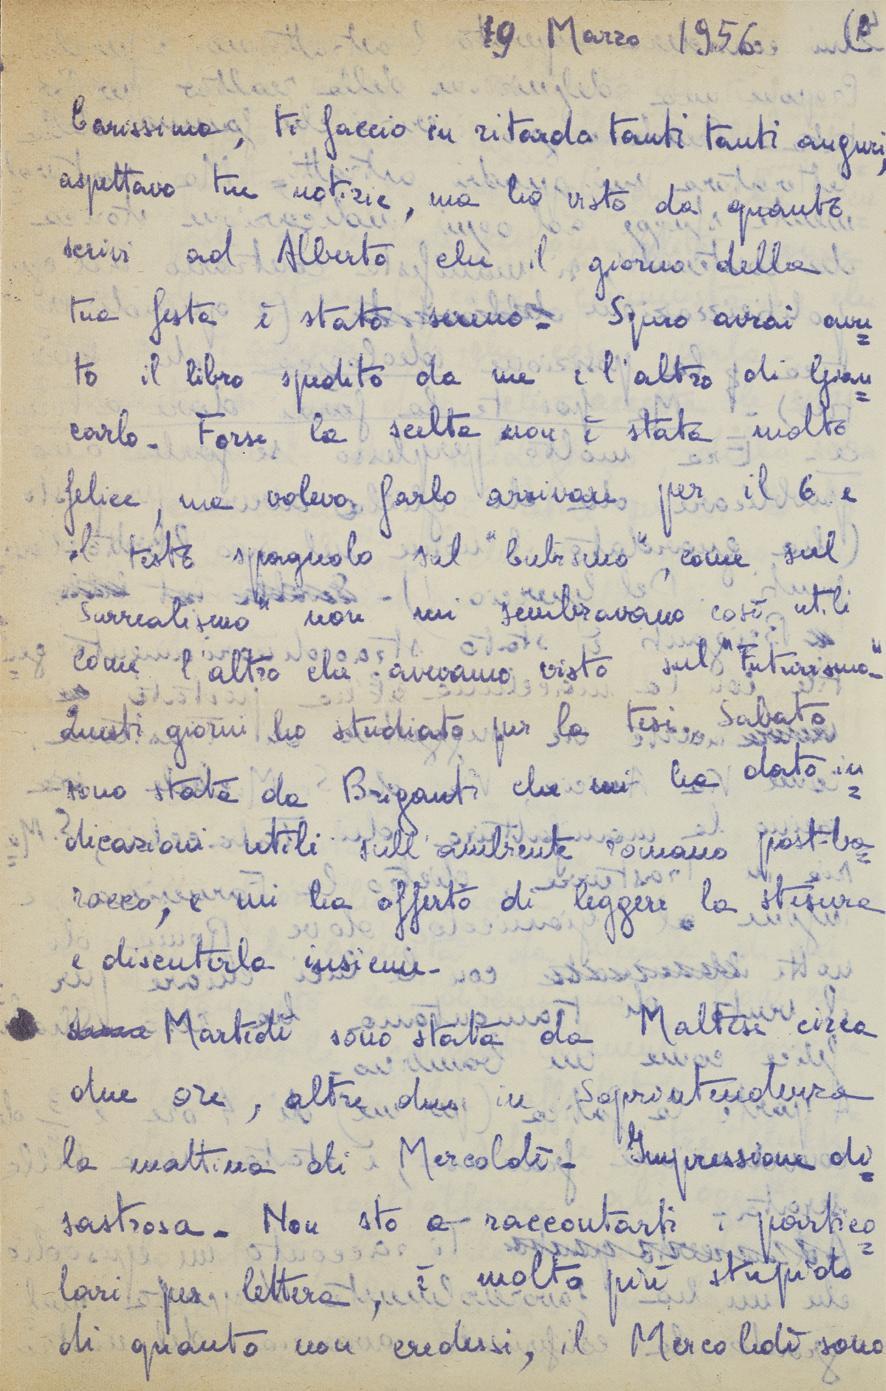 19 Marzo 1956
Carissimo, ti faccio in ritardo tanti tanti auguri,
aspettavo tue notizie, ma ho visto da quanto
scrivi ad Alberto che il giorno della
tua festa è stato sereno. Spero avrai avu=
to il libro spedito da me e l'altro di Gian=
carlo. Forse la scelta non è stata molto
felice, ma volevo farlo arrivare per il 6 e
il testo spagnolo sul "Cubismo", come sul
"Surrealismo" non mi sembravano così utili
come l'altro che avevamo visto sul "Futurismo"
Questi giorni ho studiato per la tesi. Sabato
sono stata da Briganti che mi ha dato in=
dicazioni utili sull'ambiente romano post-ba=
rocco, e mi ha offerto di leggere la stesura
e discuterla insieme.
Martedì sono stata da Maltese circa
due ore, altre due in Soprintendenza
la mattina di Mercoldì - Impressione di=
sastrosa - Non sto a raccontarti i partico=
lari per lettera, è molto più stupido
di quanto non credessi, il Mercoledì sono